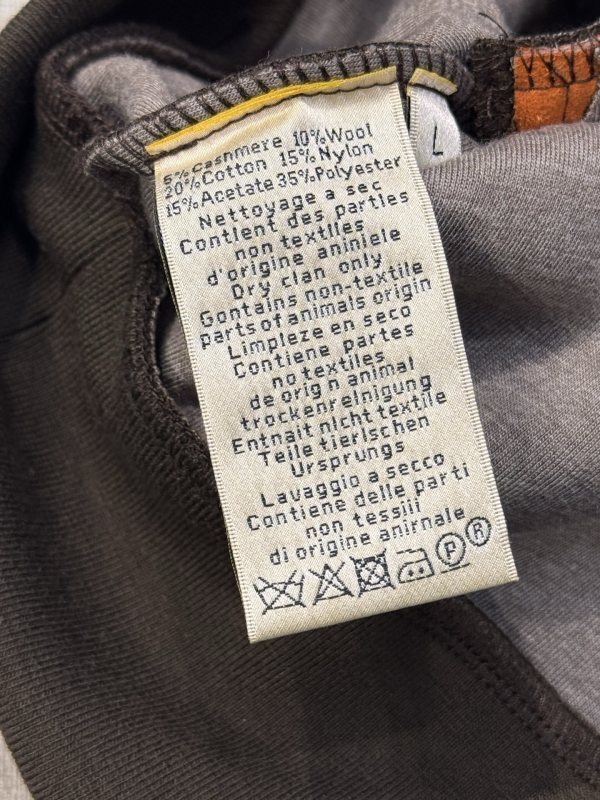 5%Cashmere 10%Wool
20%Cotton 15%Nylon
15%Acetate 35%Polyester
Nettoyage a sec
Contient des parties
non textlles
d'origine aniniele
Dry clan only
Gontains non-textile
parts of animals origin
Limpleze en seco
Contiene partes
no textiles
de orig n animal
trockenrelnigung
Entnait nlcht textile
Teile tierlschen
Ursprungs
Lavaggio a secco
Contiene delle parti
non tessiii
di origine anirnale
P ®
L